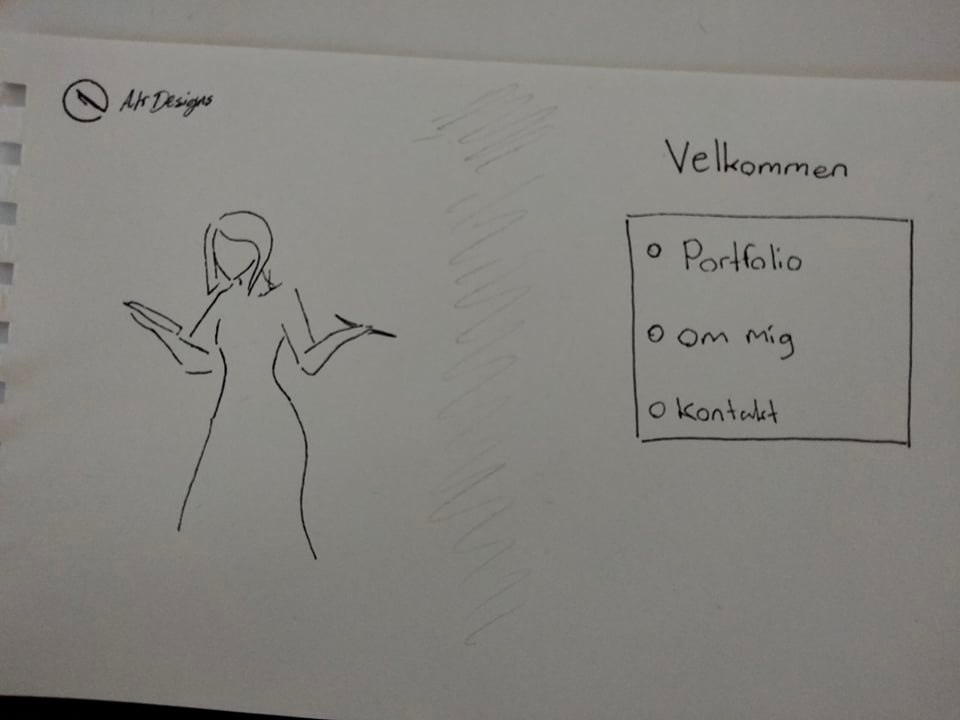 Atr Designs
Velkommen
Portfolio
om mig
Kontakt